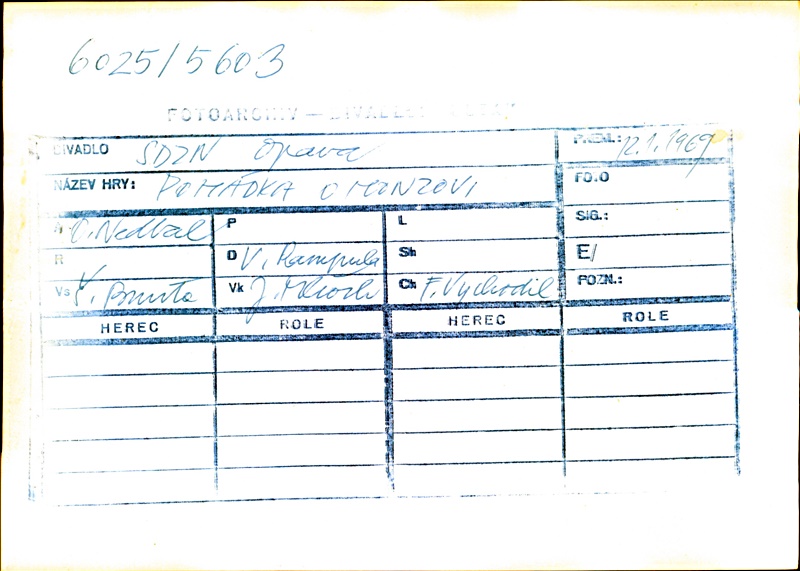 6025/5603
FOTOARCHIV — DIVADLO
DIVADLO SDZN Opava P.REM.: 12.1.1969
NÁZEV HRY: POHÁDKA O HONZOVI FO.O
A O. Nedbal P L SIG.:
R D V. Rampula Sh E/
Vs Vk Ch F. Vychodil POZN.:
HEREC ROLE HEREC ROLE